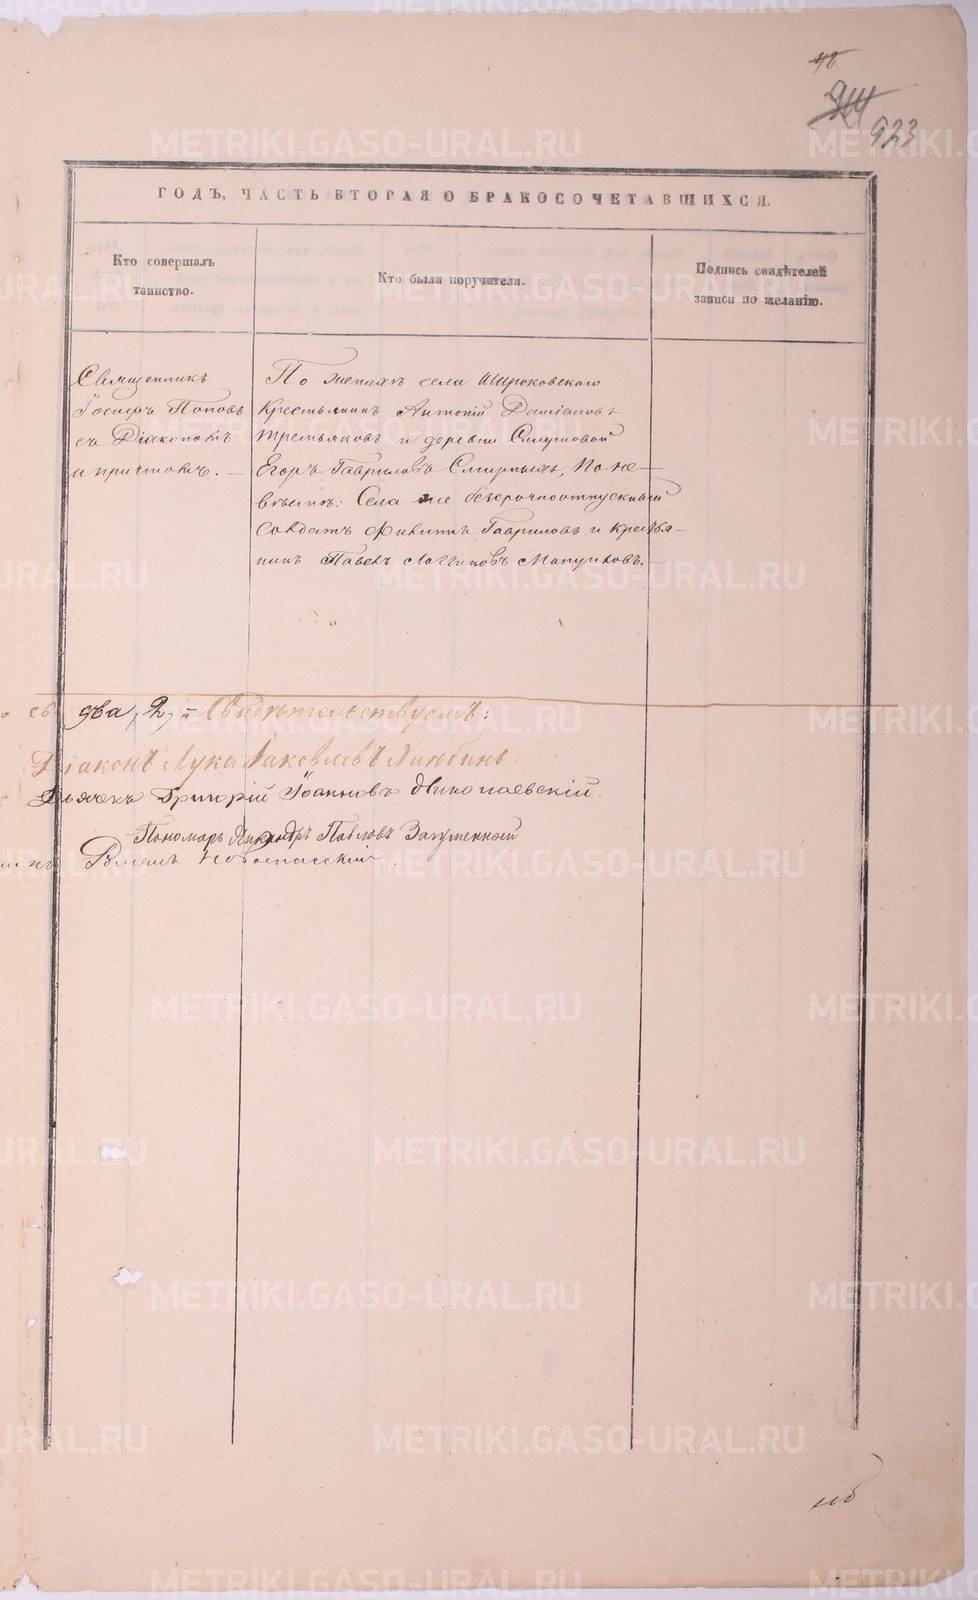 42
914
923
ГОДЪ, ЧАСТЬ ВТОРАЯ О БРАКОСОЧЕТАВШИХСЯ.
Кто совершалъ
таинство.
Кто были поручители.
Подпись свидѣтелей
записи по желанію.
Священникъ
Іосифъ Поповъ
съ Діакономъ
и причтомъ. —
По женихѣ села Широковскаго
Крестьянинъ Антоній Даміановъ
Третьяковъ и деревни
Егоръ Гавриловъ Смирныхъ, По не-
вѣстѣ: Села же безсрочноотпускный
Солдатъ Филиппъ Гавриловъ и крестья-
нинъ Павелъ Логгиновъ —
два, 2, = Свидѣтельствуемъ:
Діаконъ Лука Іаковлевъ
Дьячекъ Григорій Іоанновъ Николаевскій.
Пономарь Никандръ Павловъ
METRIKI.GASO-URAL.RU